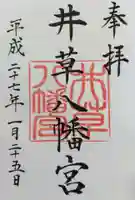 奉拝
井草八幡宮
平成二十七年一月二十五日